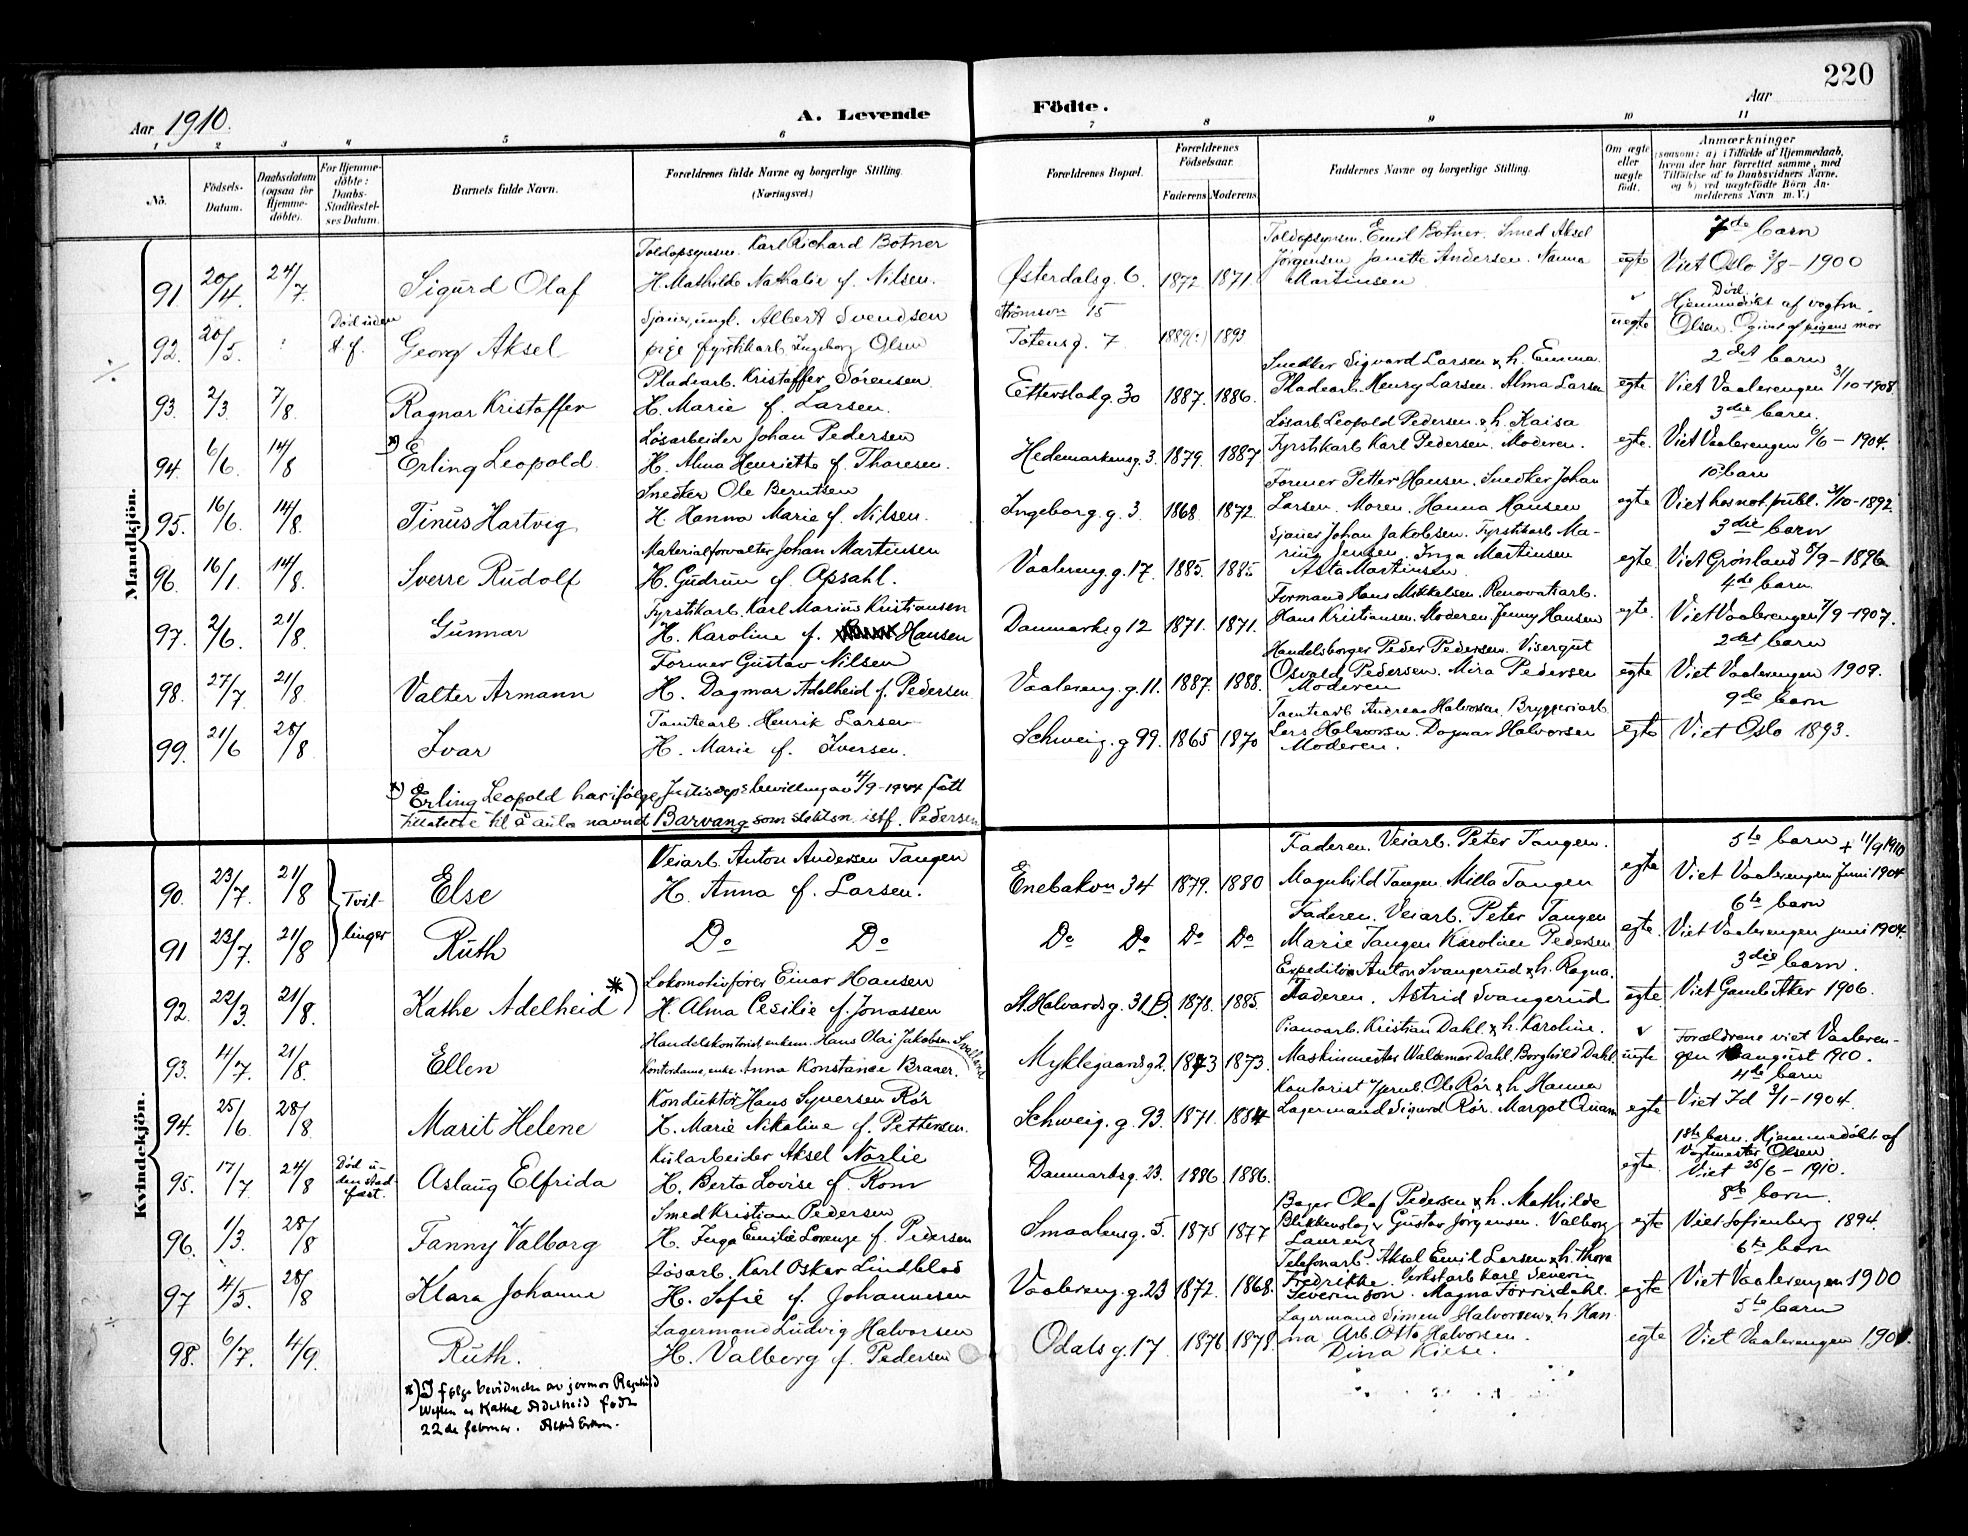 220
Aar 1910.
A. Levende Födte.
Aar
1 2 3 4 5 6 7 8 9 10 11
No.
Födsels-Datum.
Daabsdatum (ogsaa for Hjemme-döbte).
For Hjemme-döbte: Daabs-Stadfæstel-ses Datum.
Barnets fulde Navn.
Forældrenes fulde Navne og borgerlige Stilling. (Næringsvei.)
Forældrenes Bopæl.
Forældrenes Födselsaar.
Faderens Moderens
Faddernes Navne og borgerlige Stilling.
Om ægte eller uægte födt.
Anmærkninger
(saasom: a) i Tilfælde af Hjemmedaab,
hvem der har forrettet samme, med
Tilföielse af to Daabsvidners Navne.
og b) ved uægtefödte Börn An-
melderens Navn m. V.)
Mandkjön.
Toldopsynsm. Karl Richard Botner
Toldopsynsm. Emil Botner. Smed Aksel
7de barn
91 20/4 24/7 Sigurd Olaf
H. Mathilde Nathalie f. Nilsen.
Østerdalsg. 6. 1872 1871.
Jørgensen Janette Andersen. Nanna
Martinsen
egte
Viet Oslo 3/8 - 1900
Død uden
Sjauer, ungk. Albert Svendsen
Strömsvn 15
Død.
Hjemmedøbt af vogtm.
92. 20/5. Georg Aksel
pige fyrstikarb. Ingeborg Olsen
Totensg. 7 1893
uegte
Olsen. Opgivet af pigens mor
Pladearb. Kristoffer Sörensen
Snedker Sigvard Larsen & h. Emma
2det barn
93. 2/3 7/8. Ragnar Kristoffer
H. Marie f. Larsen.
Etterstadg. 30 1887. 1886.
Pladearb. Henry Larsen. Alma Larsen
egte
Viet Vaalerengen 31/10-1908.
Løsarbeider Johan Pedersen
Løsarb. Leopold Pedersen & h. Kaisa
3die barn.
94 6/6. 14/8 *) Erling Leopold.
H. Alma Henriette f. Thoresen.
Hedemarkensg. 3. 1879. 1887
Fyrstikarb Karl Pedersen. Moderen.
egte.
Viet Vaalerengen 6/6 - 1904.
Snedker Ole Berntsen
Former Petter Hansen. Snedker Johan
10. barn
95. 16/6. 14/8. Tinus Hartvig
H. Hanna Marie f. Nilsen.
Ingeborg. g. 3. 1868 1872.
Larsen. Moren. Hanna Hansen
egte
Viet hos not. publ. 31/10-1892.
Materialforvalter Johan Martinsen
Sjauer Johan Jakobsen. Fyrstikarb. Ma-
3die barn
96. 16/1. 14/8. Sverre Rudolf
H. Gudrun f. Opsahl.
Vaalereng. g. 17. 1885. 1885
rius Jensen. Inga Martinsen
Asta Martinsen.
egte.
Viet Grønland 5/9 - 1896
Fyrstikarb. Karl Marius Kristiansen
Formand Hans Mikkelsen. Renovatiarb.
4de barn.
97. 2/6. 21/8. Gunnar
H. Karoline f. Hansen
Danmarksg 12 1871. 1871.
Hans Kristiansen. Moderen. Jenny Hansen
egte.
Viet Vaalerengen 7/9 - 1907.
Former Gustav Nilsen
Handelsborger Peder Pedersen. Visergut
2det barn
98. 27/7. 21/8. Valter Armann
H. Dagmar Adelheid f. Pedersen
Vaalereng. g. 11. 1887. 1888.
Osvald Pedersen. Mira Pedersen
Moderen
egte
Viet Vaalerengen 1909.
Tomtearb. Henrik Larsen
Tomtearb Andreas Halvorsen. Bryggeriarb.
9de barn
99. 21/6 28/8. Ivar
H. Marie f. Iversen.
Schweig. g 99. 1865 1870
Lars Halvorsen. Dagmar Halvorsen
Moderen.
egte
Viet Oslo 1893.
*) Erling Leopold har ifølge Justisdep's bevilling av 4/9-1944 fått
tillatelse til å anta navnet Barvang som slektsn. istf. Pedersen
Kvindekjön.
Veiarb. Anton Andersen Tangen
Faderen. Veiarb. Peter Tangen.
5te barn + 11/9 1910
90. 23/7. 21/8 Tvil- Else
H. Anna f. Larsen.
Enebakvn 34 1879. 1880
Magnhild Tangen. Milla Tangen
egte
Viet Vaalerengen Juni 1904
Faderen. Veiarb. Peter Tangen
6te barn
91 23/7. 21/8 linger Ruth
Do Do Do Do Do Do
Marie Tangen Karoline Pedersen
egte.
Viet Vaalerengen juni 1904.
Lokomotivfører Einar Hansen
Expeditør Anton Svangerud & h. Ragna.
3die barn.
92. 22/3. 21/8. Kathe Adelheid *)
H. Alma Cesilie f. Jonassen
St. Halvardsg. 31 B. 1878. 1885.
Faderen. Astrid Svangerud
egte.
Viet Gamle Aker 1906.
Handelskontorist, enkem. Hans Olai Jakobsen Svalland
Pianoarb. Kristian Dahl & h. Karoline.
Forældrene viet Vaaleren-
93. 4/7. 21/8. Ellen
Kontordame, enke Anna Konstance Braaer.
Myklegaardsg 2. 1873 1873.
Maskinmester Waldemar Dahl. Borghild Dahl
uegte
gen august 1910.
Konduktør Hans Syversen Rör
Kontorist Ole Rör & h. Hanna
4de barn
94. 25/6 28/8. Marit Helene
H. Marie Nikoline f. Pettersen.
Schweig. g. 93. 1871. 1884
Lagermand Sigurd Rör. Margot Quam
egte
Viet Id 3/1 - 1904.
Kularbeider Aksel Norlie
1ste barn. Hjemmedøbt af
Vogtmester Olsen
95. 17/7 24/8 Død u-
den stad-
fæst. Aslaug Elfrida
H. Berta Lovise f. Rom
Danmarksg. 23. 1886 1886.
egte.
Viet 25/6 - 1910.
Smed Kristian Pedersen
Bager Olaf Pedersen & h. Mathilde
8de barn.
96. 1/3. 28/8 Fanny Valborg
H. Inga Emilie Lorenze f. Pedersen
Smaalensg. 5. 1875 1877
Blikkenslager Gustav Jörgensen. Valborg
Laurenz
egte
Viet Sofienberg 1894.
Løsarb. Karl Oskar Lindblad
Telefonarb. Aksel Emil Larsen & h. Thora
6te barn
97 4/5. 28/8 Klara Johanne
H. Sofie f. Johannesen
Vaalereng. g. 23 1872. 1868.
Fredrikke. Verkstarb Karl Severin
Severinson. Magna Torrisdahl.
egte
Viet Vaalerengen 1900
Lagermand Ludvig Halvorsen
Lagermand Simen Halvorsen & h Han
5te barn
98. 6/7. 4/9. Ruth.
H. Valborg f. Pedersen
Odals g. 17. 1876 1878.
na Arb. Otto Halvorsen.
Dina Kiese.
egte
Viet Vaalerengen
*) I følge bevidnelse av jormor Ragnhild
er Kathe Adelheid født
22de februar.